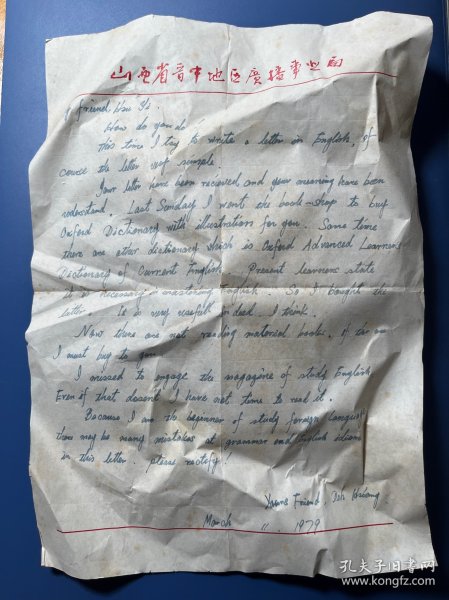 山西省晋中地区广播事业局
friend Hsu
How do you do!
This time I try to write a letter in English, of
course the letter simple.
Your letter have been received and your meaning have been
understand. Last Sunday I went the book-shop to buy
Oxford Dictionary with illustrations for you. Same time
there are other dictionary which is Oxford Advanced Learners
Dictionary of Current English. Present learners state
it is necessary mastering English. So I bought the
letter. It is very usefull indeed I think.
Now there are not reading material books, if
I must buy to you.
I missed to engage the magazine of study English,
Even if that I have not time to read it.
Because I am the beginner of study foreign language
there may be many mistakes at grammar and English idioms
in this letter. please rectify!
Yours Friend,
March 11, 1979
孔夫子旧书网
www.kongfz.com